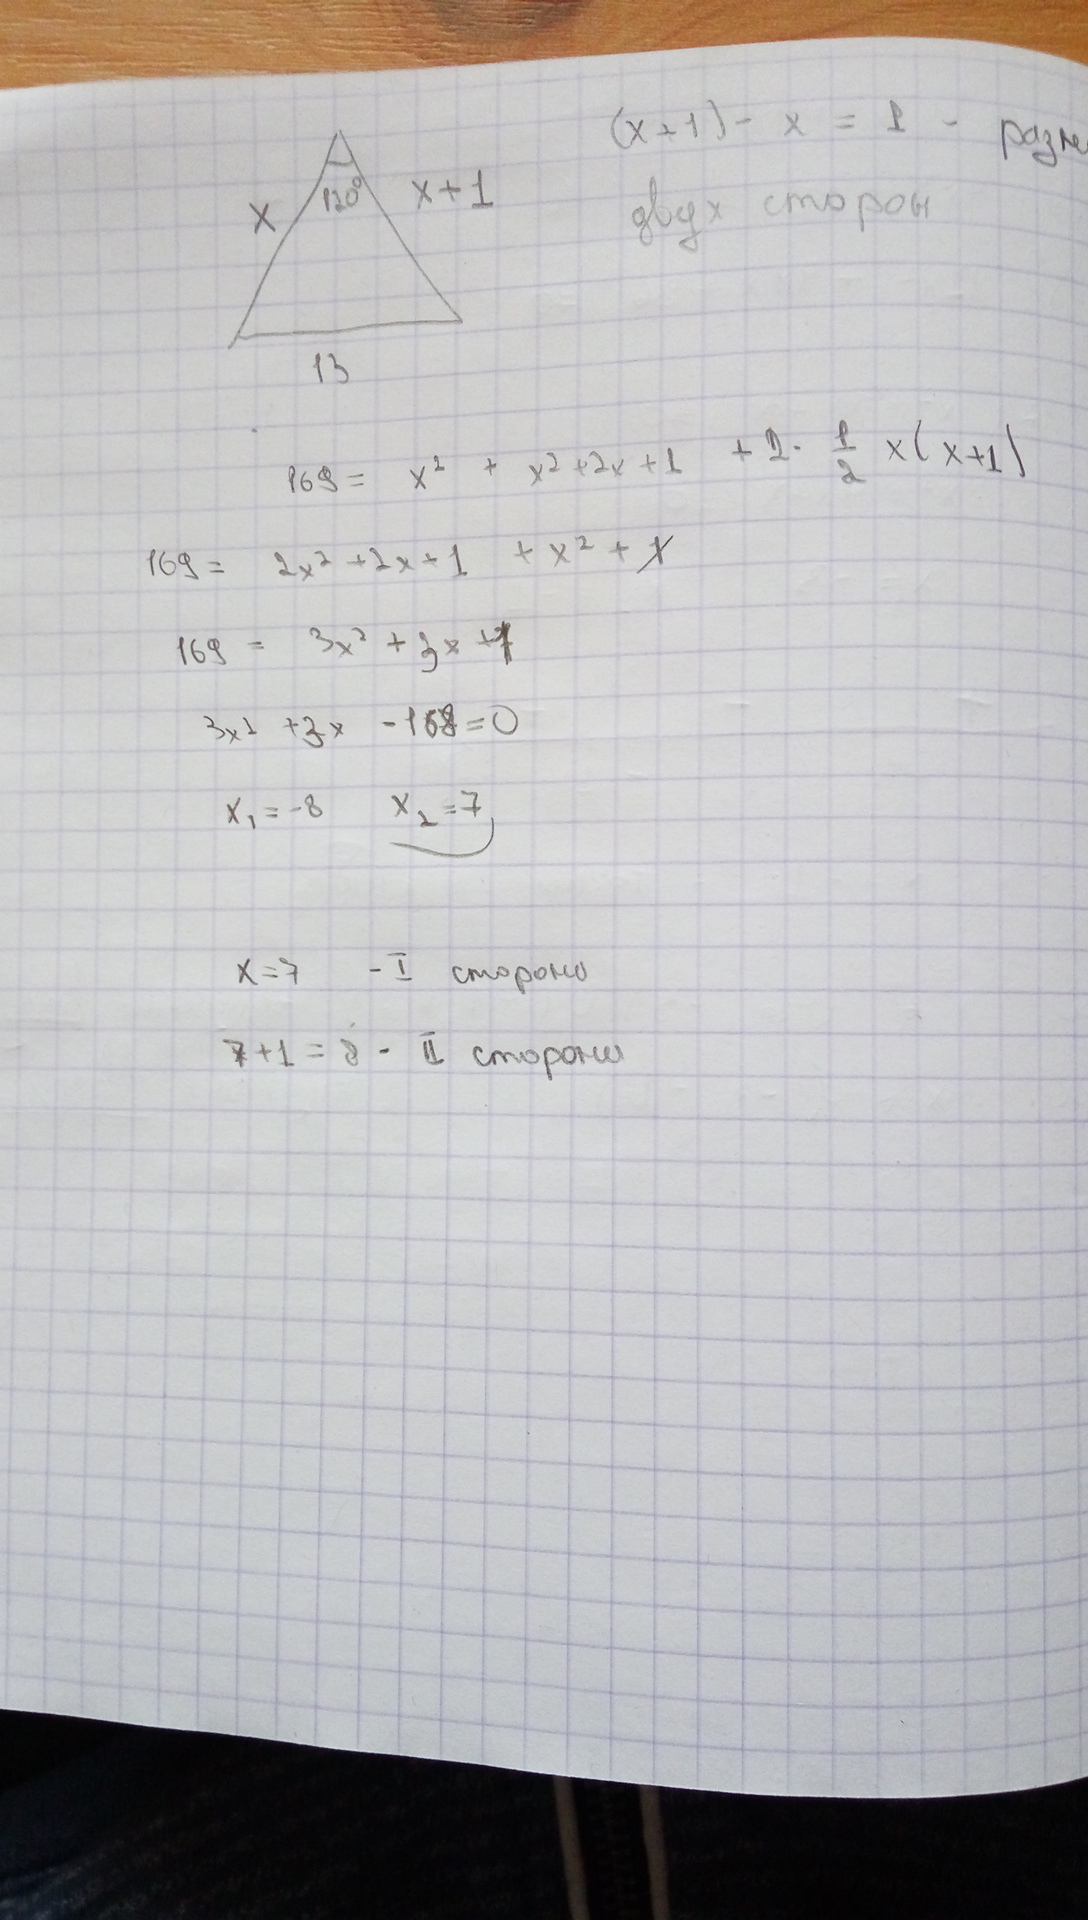 (x+1) - x = 1 -
двух сторон
x 120° x+1
13
169 = x² + x²+2x+1 + 2· 1/2 x(x+1)
169 = 2x²+2x+1 + x² + x
169 = 3x² + 3x +1
3x² + 3x - 168=0
x₁ = -8 x₂ = 7
x=7 - I сторона
7+1 = 8 - II сторона